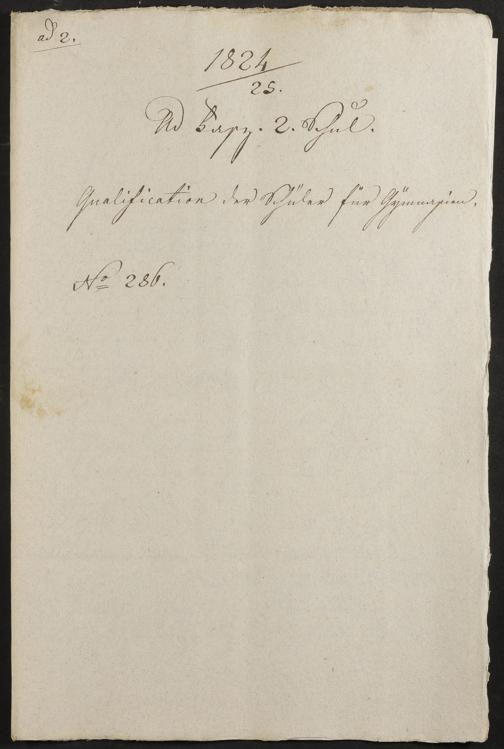 ad 2.
1824
25.
Ad Fasz. 2. Schul.
Qualification der Schüler für Gÿmnasien.
No 286.